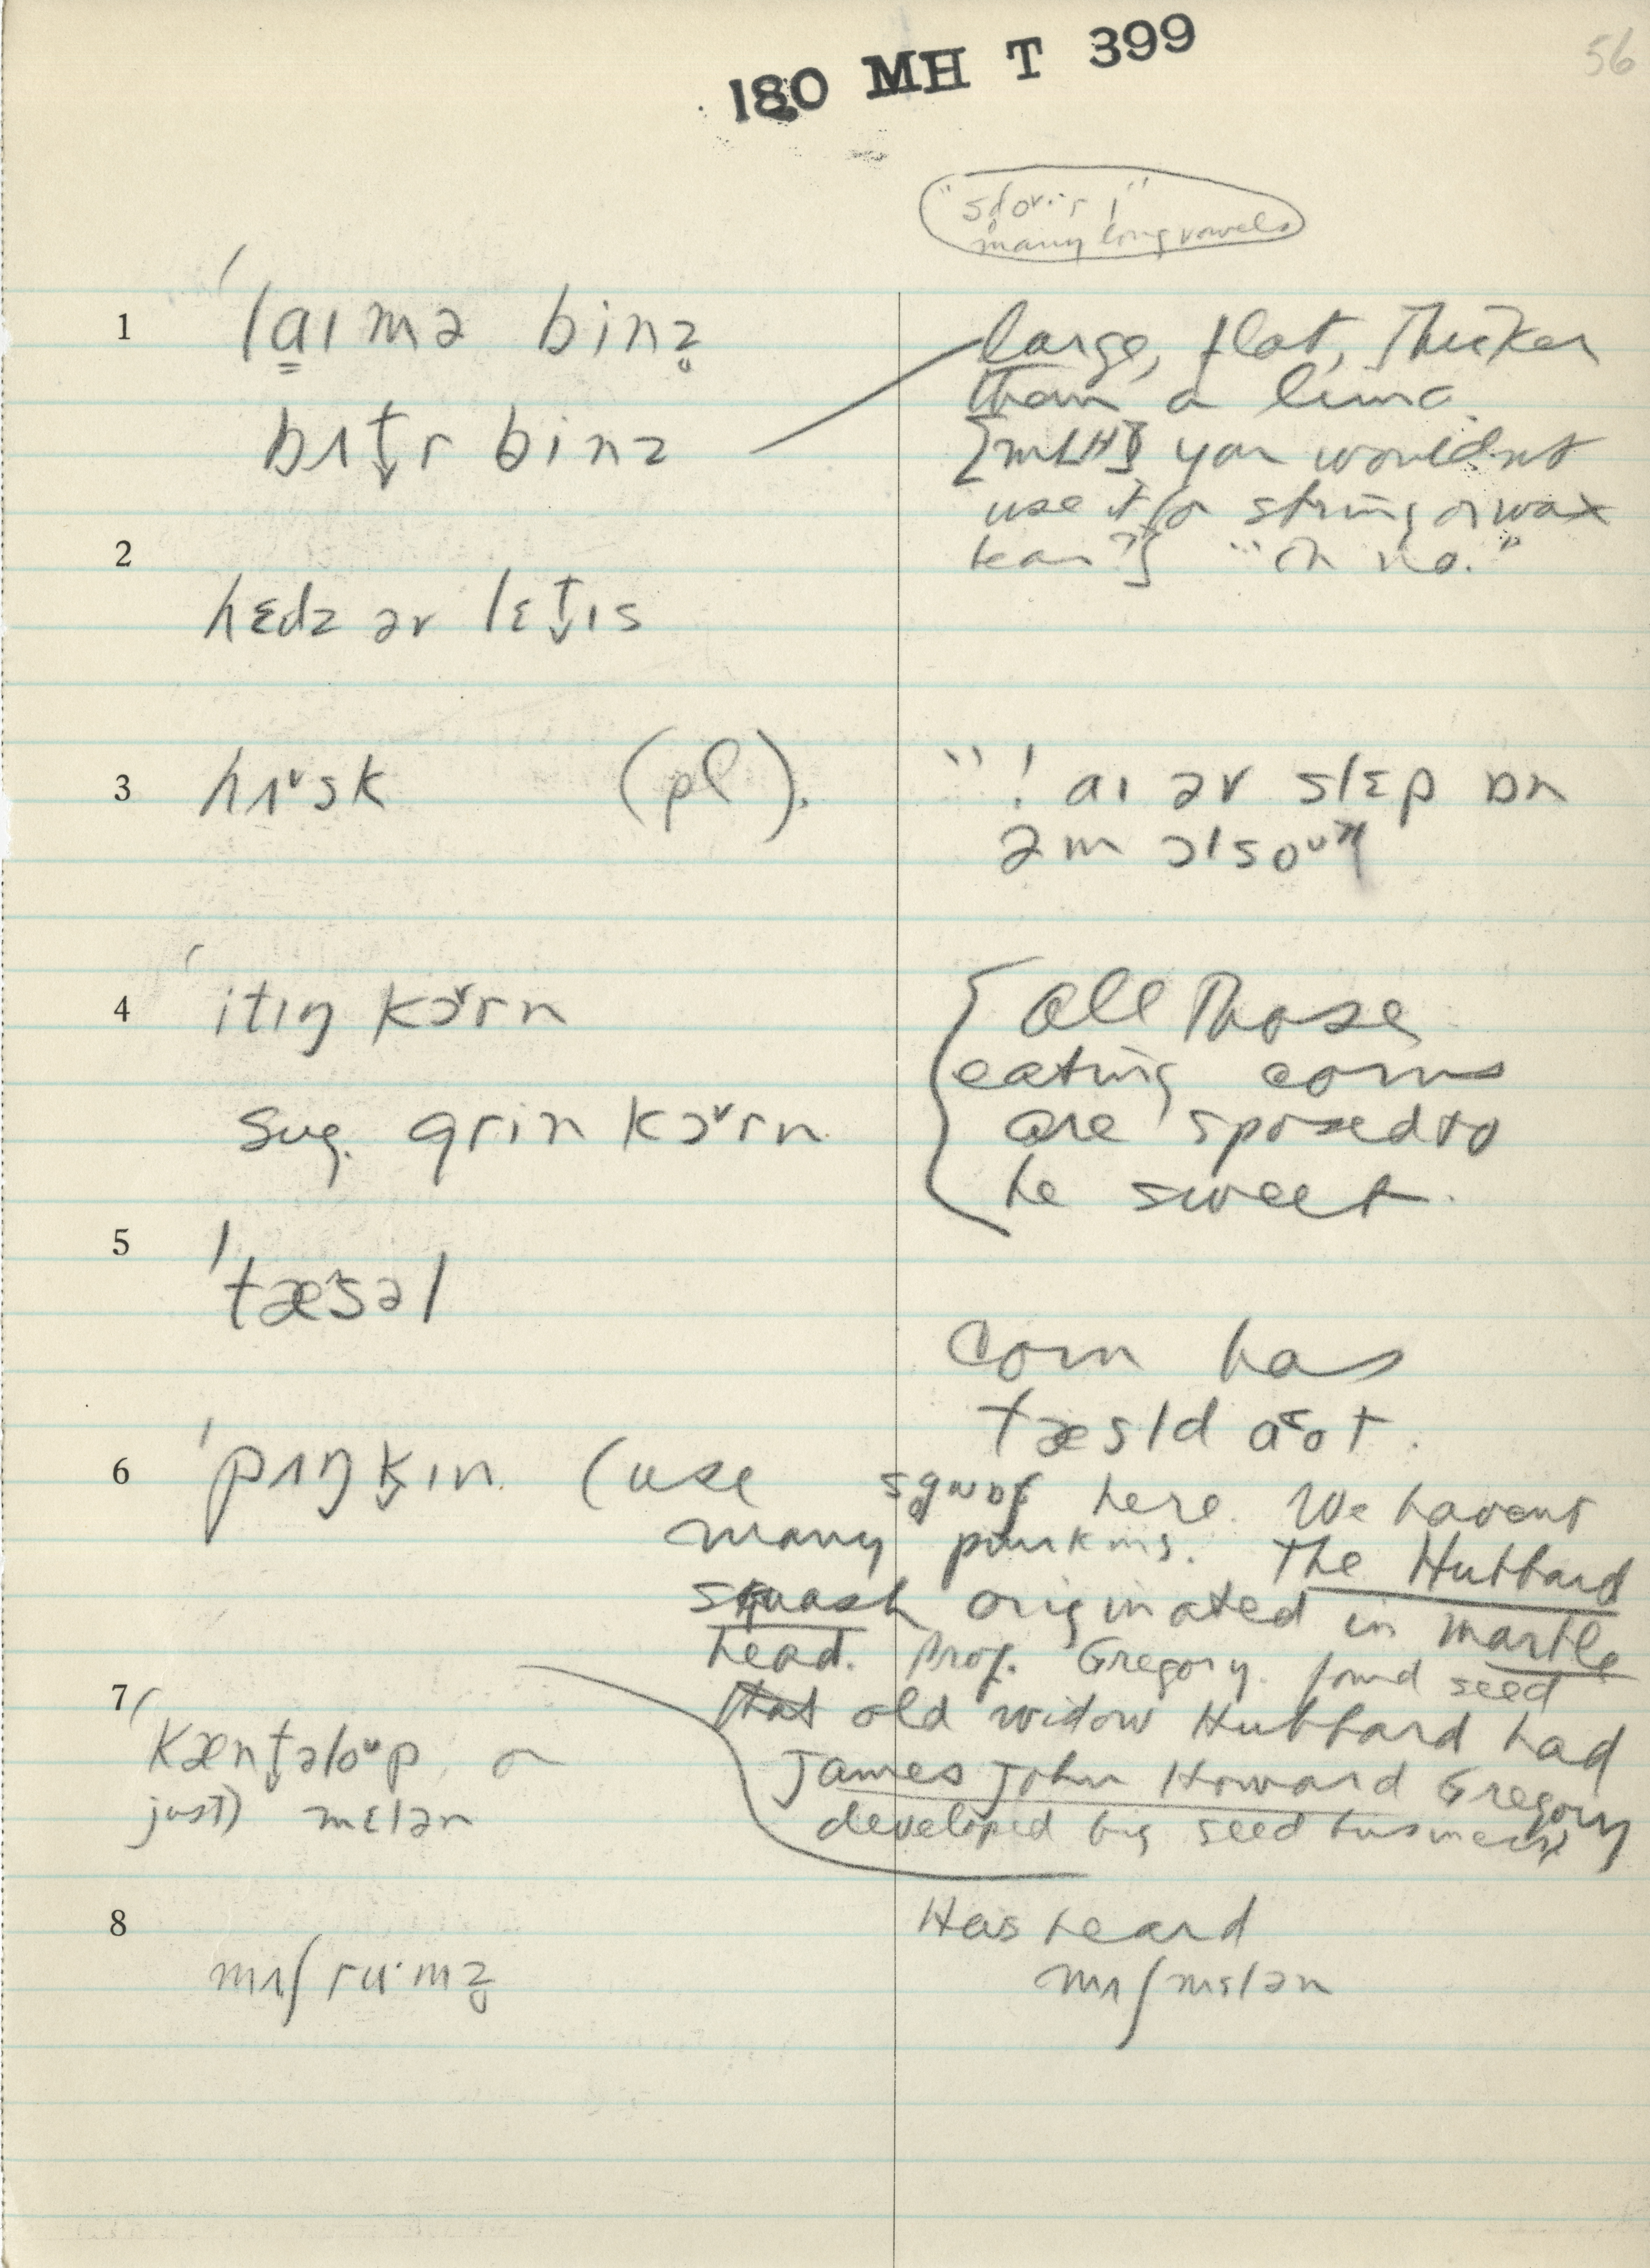 180 MH T 399
56
many long vowels
1 'laɪmə binz̥
large, flat, thicker
than a lima.
bʌt̬r binz
[MLH] you wouldnt
use it for string or wax
bean?] "oh no."
2
hɛdz ər lɛt̬ɪs
3 hʌˇsk (pl).
"! aɪ əv slɛp ɒn
əm ɔlsoᵘ"
4 'itɪŋ kɔˇrn
All those
eating corns
sug. grin kɔˇrn
are sposed to
be sweet.
5 'tæsəl
Corn has
tæsld aʊt.
6 'pʌŋk̬ɪn (use here. We havent
many punkins. The Hubbard
squash originated in Marble
head. Prof. Gregory found seed
that old widow Hubbard had
James John Howard Gregory
developed big seed business
7 'kænt̬əloᵘp or
just) mɛlən
8
Has heard
mʌʃ mɛlən
mʌʃru·mz̬